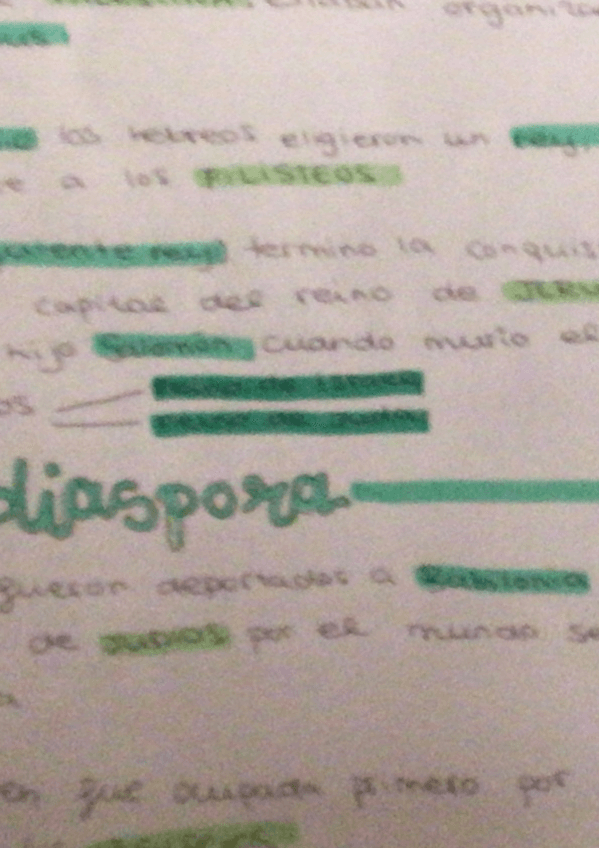 organiza
los hebreos eligieron un rey
e a los FILISTEOS
rey termino la conquis
capital del reino de JERU
hijo Salomón cuando murio el
os
Reino de Israel
Reino de Judá
diaspora
fueron deportados a Babilonia
de JUDIOS por el mundo se
a
en fue ocupada primero por